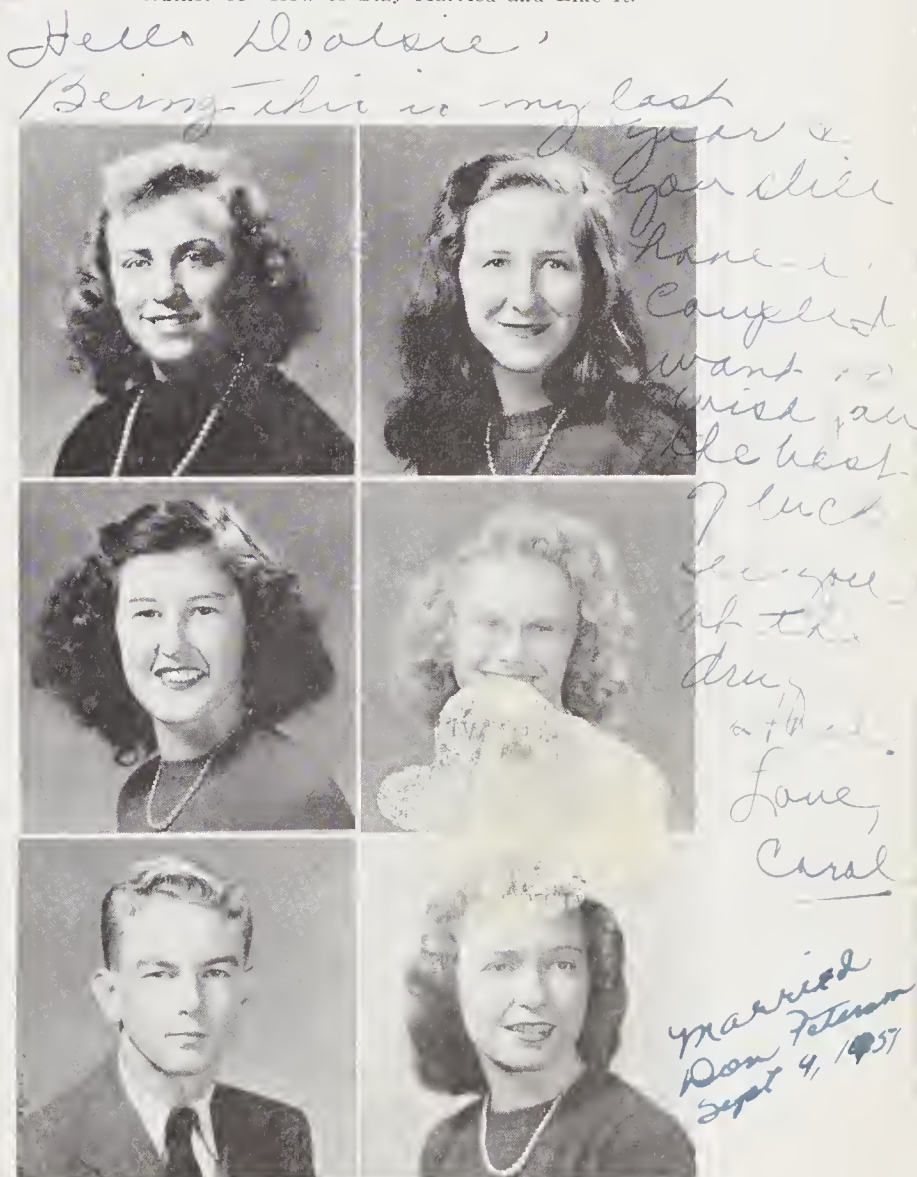 Author of "How to Stay Married and Like It."
Hello Dootsie,
Being this is my last
year &
you still
have a
couple I
want to
wish you
the best
of luck
See you
at the
drug
Love,
Carol
Married
Don Peterson
Sept 4, 1951